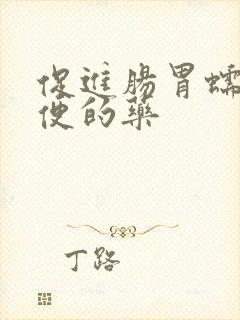 促進腸胃蠕
便的藥
丁路